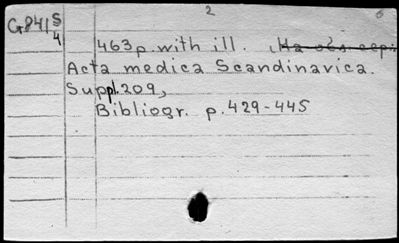 2
G841 5/4
463p. with ill.
Acta medica Scandinavica.
Suppl. 209,
Bibliogr. p. 429-445